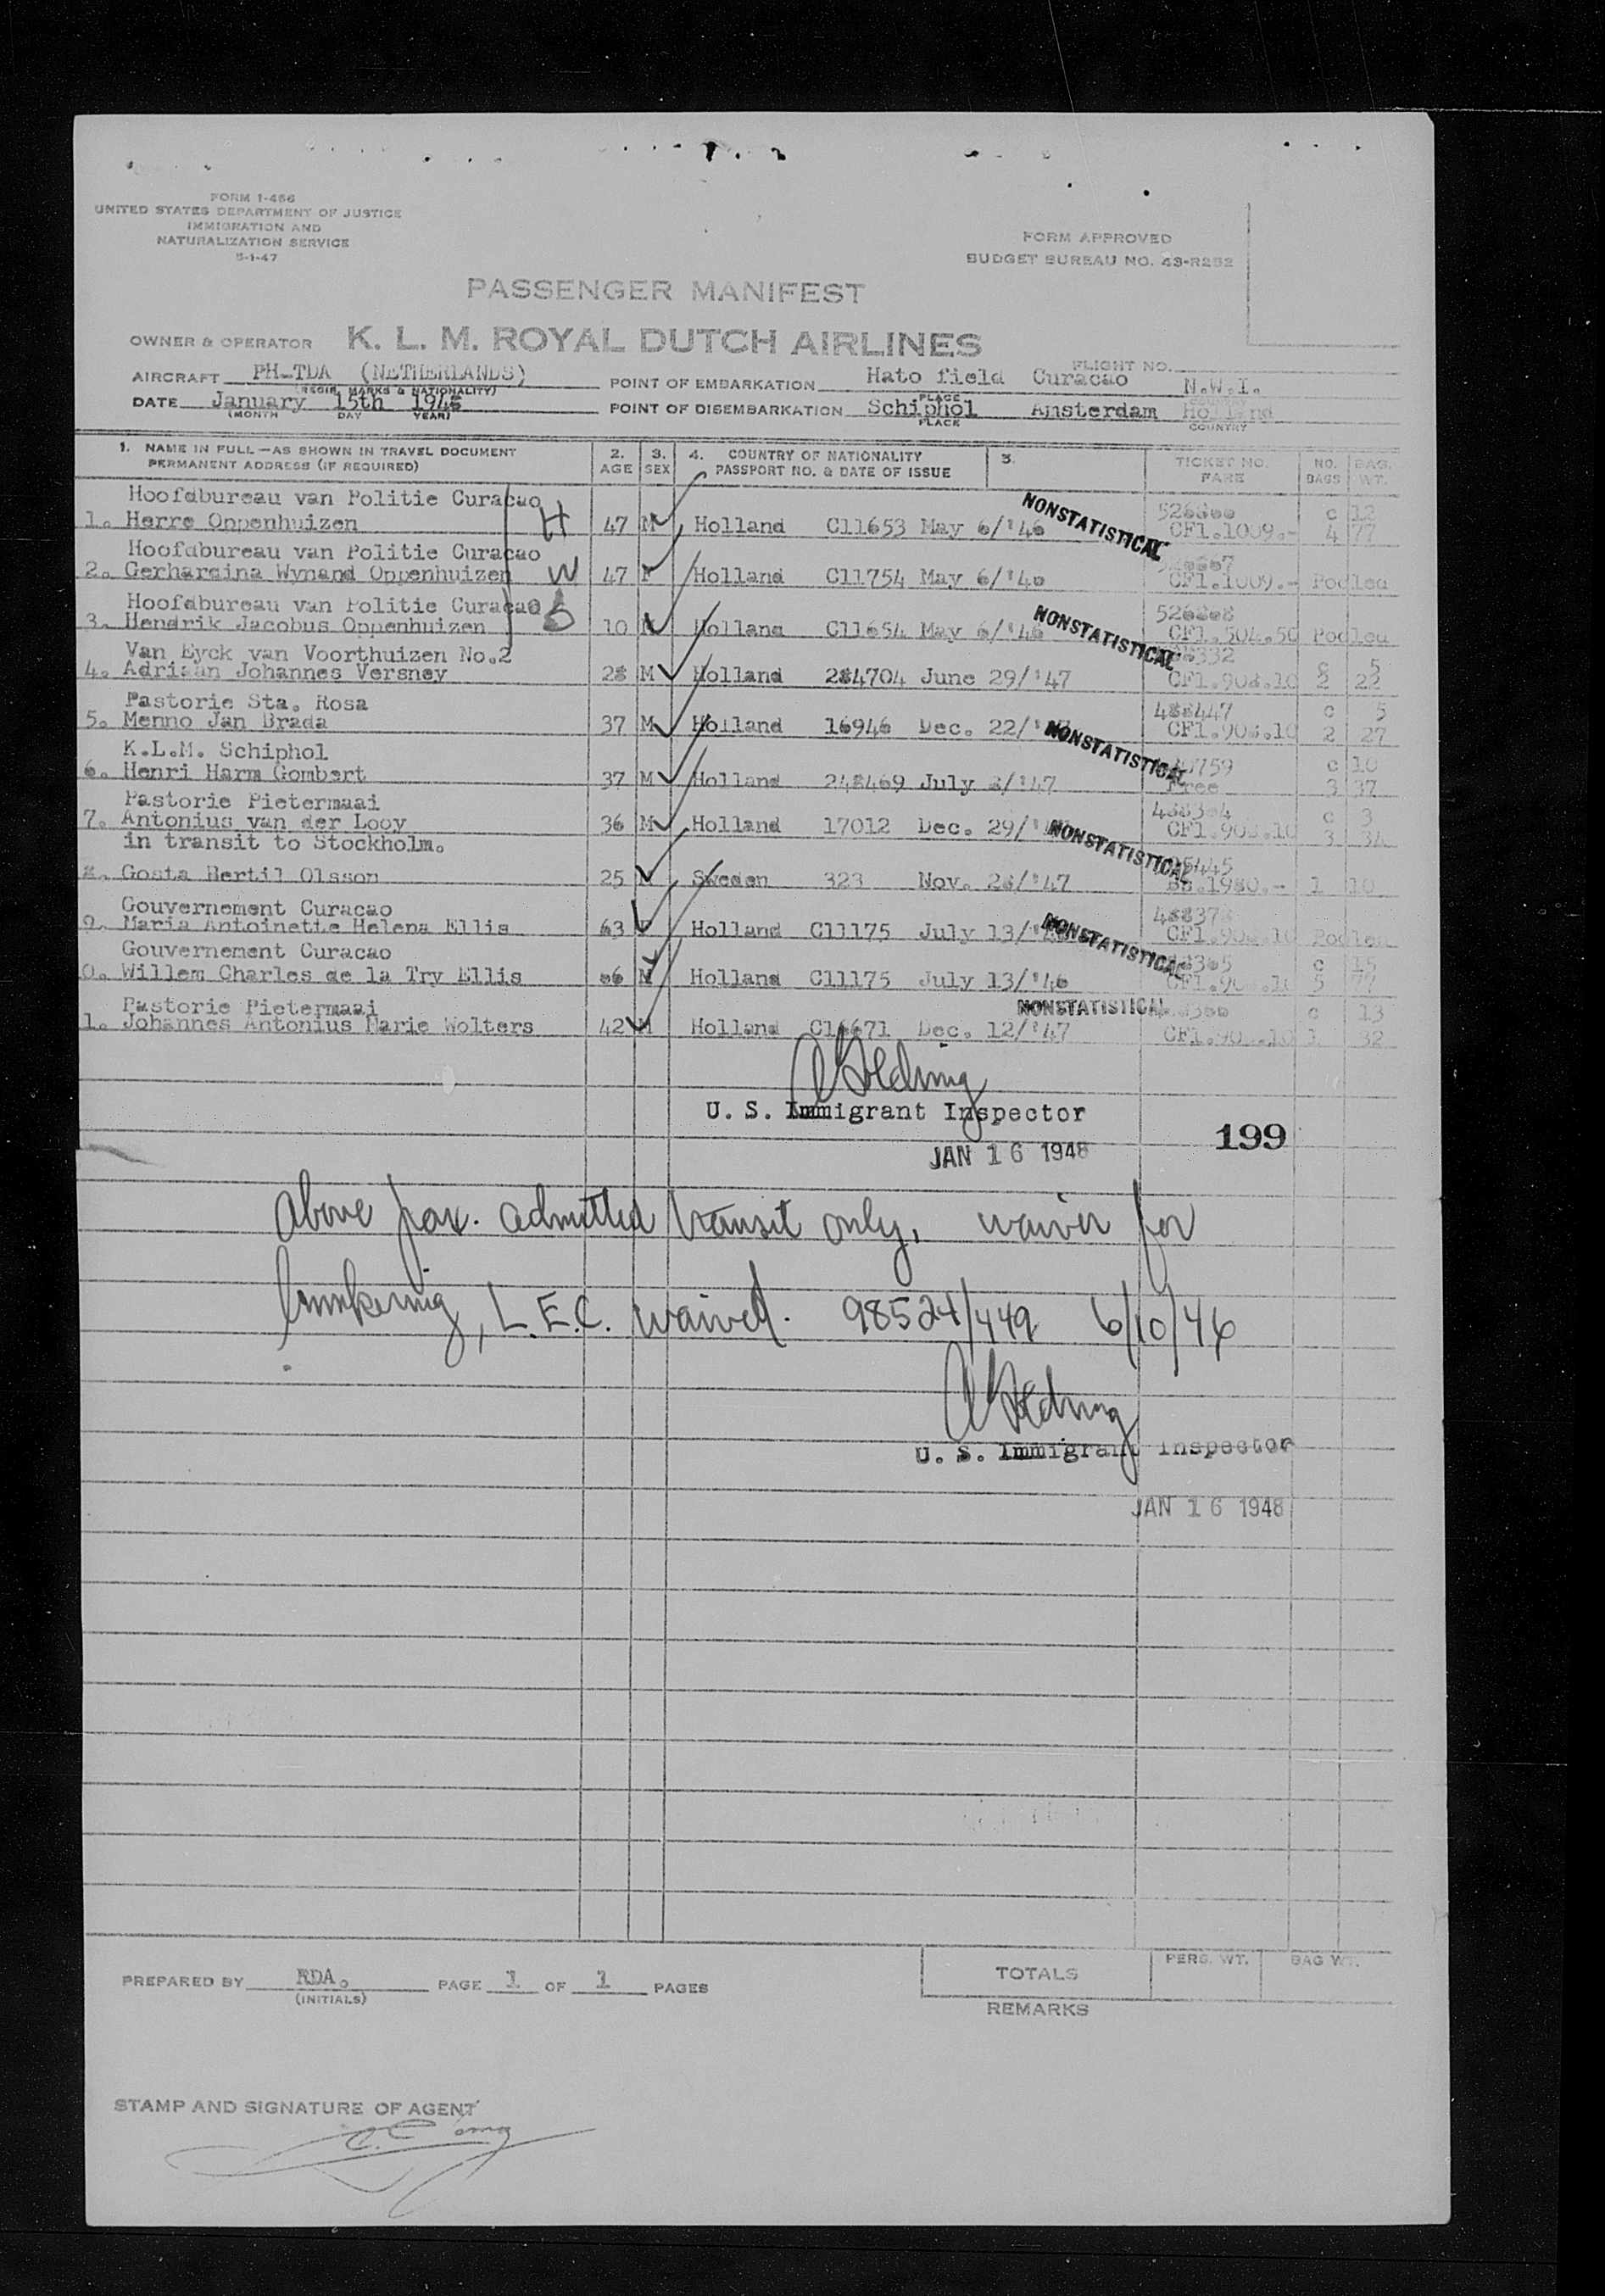 FORM I-466
UNITED STATES DEPARTMENT OF JUSTICE
IMMIGRATION AND
NATURALIZATION SERVICE
5-1-47
FORM APPROVED
BUDGET BUREAU NO. 43-R252
PASSENGER MANIFEST
OWNER & OPERATOR K. L. M. ROYAL DUTCH AIRLINES
FLIGHT NO.
AIRCRAFT PH-TDA (NETHERLANDS) POINT OF EMBARKATION Hato field Curacao N.W.I.
(REGIS. MARKS & NATIONALITY) PLACE
DATE January 15th 1948 POINT OF DISEMBARKATION Schiphol Amsterdam Holland
(MONTH DAY YEAR) PLACE COUNTRY
1. NAME IN FULL—AS SHOWN IN TRAVEL DOCUMENT 2. 3. 4. COUNTRY OF NATIONALITY 5. TICKET NO. NO. BAG.
PERMANENT ADDRESS (IF REQUIRED) AGE SEX PASSPORT NO. & DATE OF ISSUE FARE BAGS WT.
Hoofdbureau van Politie Curacao NONSTATISTICAL c 12
1. Herre Oppenhuizen H 47 M Holland C11653 May 6/'46 CFl.1009.- 4 77
Hoofdbureau van Politie Curacao
2. Gerhardina Wynand Oppenhuizen W 47 F Holland C11754 May 6/'46 CFl.1009.- Pooled
Hoofdbureau van Politie Curacao NONSTATISTICAL
3. Hendrik Jacobus Oppenhuizen S 10 M Holland C11654 May 6/'46 CFl.504.50 Pooled
Van Eyck van Voorthuizen No.2 c 5
4. Adriaan Johannes Versney 28 M Holland 284704 June 29/'47 CFl.908.10 2 22
Pastorie Sta. Rosa 488447 c 5
5. Menno Jan Brada 37 M Holland 16946 Dec. 22/' NONSTATISTICAL CFl.908.10 2 27
K.L.M. Schiphol c 10
6. Henri Harm Gombert 37 M Holland 248469 July 8/'47 Free 3 37
Pastorie Pietermaai c 3
7. Antonius van der Looy 36 M Holland 17012 Dec. 29/' NONSTATISTICAL CFl.908.10 3 34
in transit to Stockholm.
8. Gosta Bertil Olsson 25 M Sweden 323 Nov. 28/'47 1980.- 1 10
Gouvernement Curacao
9. Maria Antoinette Helena Ellis 63 F Holland C11175 July 13/' NONSTATISTICAL CFl.908.10 Pooled
Gouvernement Curacao c 15
0. Willem Charles de la Try Ellis 66 M Holland C11175 July 13/'46 CFl.908.10 5 77
Pastorie Pietermaai NONSTATISTICAL c 13
1. Johannes Antonius Marie Wolters 42 M Holland C16671 Dec. 12/'47 CFl.908.10 1 32
U. S. Immigrant Inspector
JAN 16 1948
199
Above pax. admitted transit only, waiver for
bunkering, L.E.C. waived. 98524/449 6/10/46
U. S. Immigrant Inspector
JAN 16 1948
PREPARED BY RDA. PAGE 1 OF 1 PAGES
(INITIALS)
TOTALS PERS. WT. BAG WT.
REMARKS
STAMP AND SIGNATURE OF AGENT